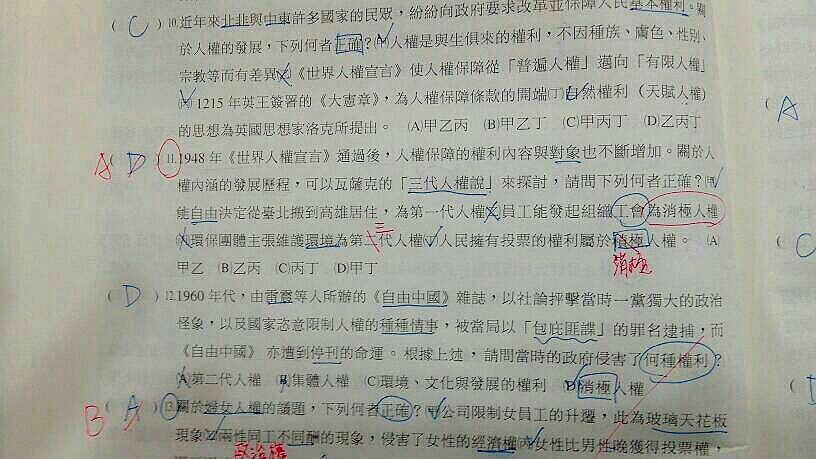 ( C ) 10.近年來北非與中東許多國家的民眾,紛紛向政府要求改革並保障人民基本權利。關
於人權的發展,下列何者正確?㈠人權是與生俱來的權利,不因種族、膚色、性別、
宗教等而有差異 《世界人權宣言》使人權保障從「普遍人權」邁向「有限人權」
1215 年英王簽署的《大憲章》,為人權保障條款的開端 自然權利(天賦人權)
的思想為英國思想家洛克所提出。 (A)甲乙丙 (B)甲乙丁 (C)甲丙丁 (D)乙丙丁
A ( D ) 11.1948 年《世界人權宣言》通過後,人權保障的權利內容與對象也不斷增加。關於人
權內涵的發展歷程,可以瓦薩克的「三代人權說」來探討,請問下列何者正確?
能自由決定從臺北搬到高雄居住,為第一代人權 員工能發起組織工會為消極人權
環保團體主張維護環境為第二代人權 人民擁有投票的權利屬於積極人權。 (A)
三
消極
甲乙 (B)乙丙 (C)丙丁 (D)甲丁
( D ) 12.1960 年代,由雷震等人所辦的《自由中國》雜誌,以社論抨擊當時一黨獨大的政治
怪象,以及國家恣意限制人權的種種情事,被當局以「包庇匪諜」的罪名逮捕,而
《自由中國》亦遭到停刊的命運。根據上述,請問當時的政府侵害了何種權利?
(A)第二代人權 (B)集體人權 (C)環境、文化與發展的權利 (D)消極人權
B ( A ) 13.關於婦女人權的議題,下列何者正確? 公司限制女員工的升遷,此為玻璃天花板
現象 兩性同工不同酬的現象,侵害了女性的經濟權 女性比男性晚獲得投票權,
政治權
A
C